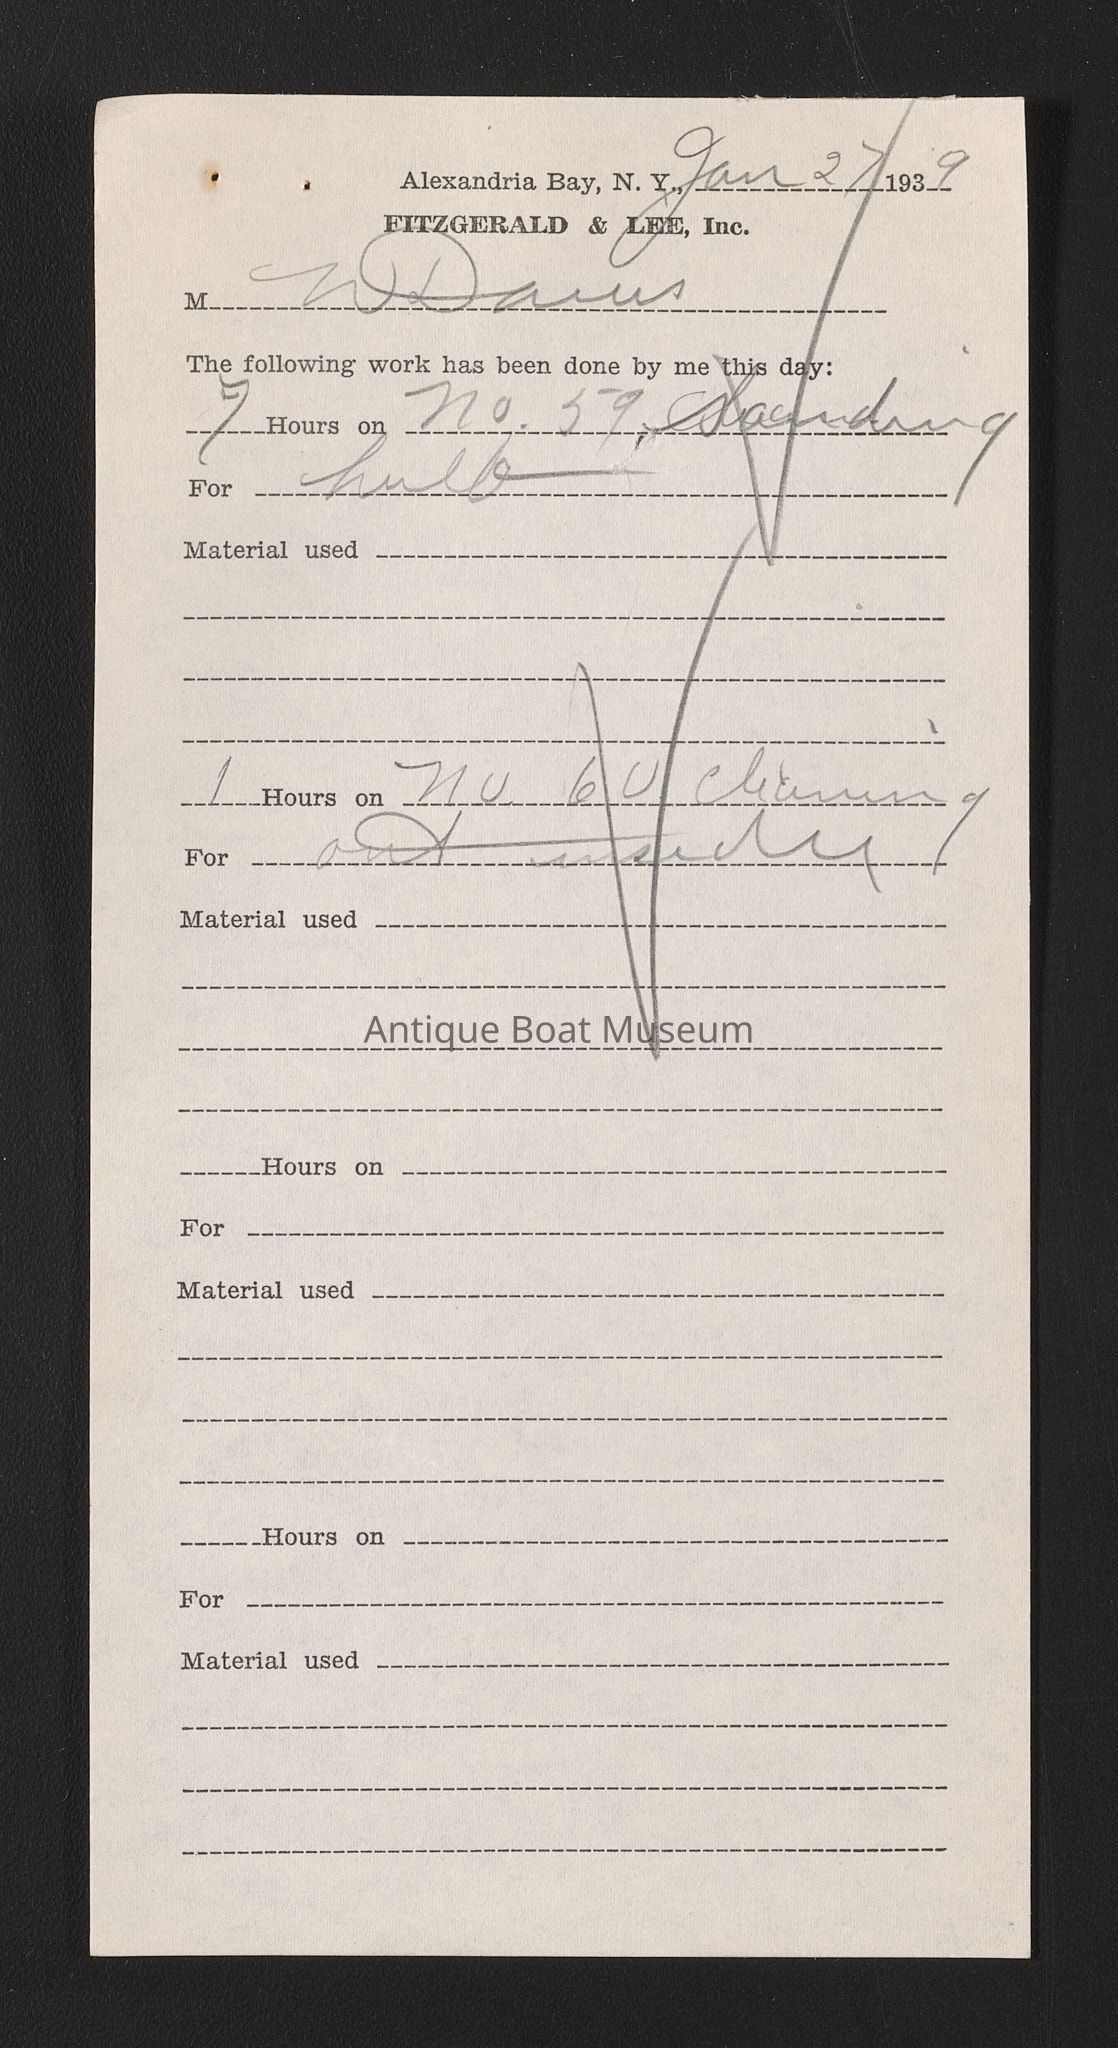 Alexandria Bay, N. Y., Jan 27 1939
FITZGERALD & LEE, Inc.
M W Davis
The following work has been done by me this day:
7 Hours on No. 59, Sanding
For hull
Material used
1 Hours on No 60 cleaning
For out inside
Material used
Antique Boat Museum
Hours on
For
Material used
Hours on
For
Material used